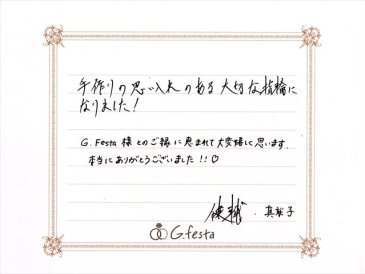 手作りの思い入れのある大切な指輪に
なりました!
G.Festa様とのご縁に恵まれて大変嬉しく思います。
本当にありがとうございました!!♡
真梨子
G.festa